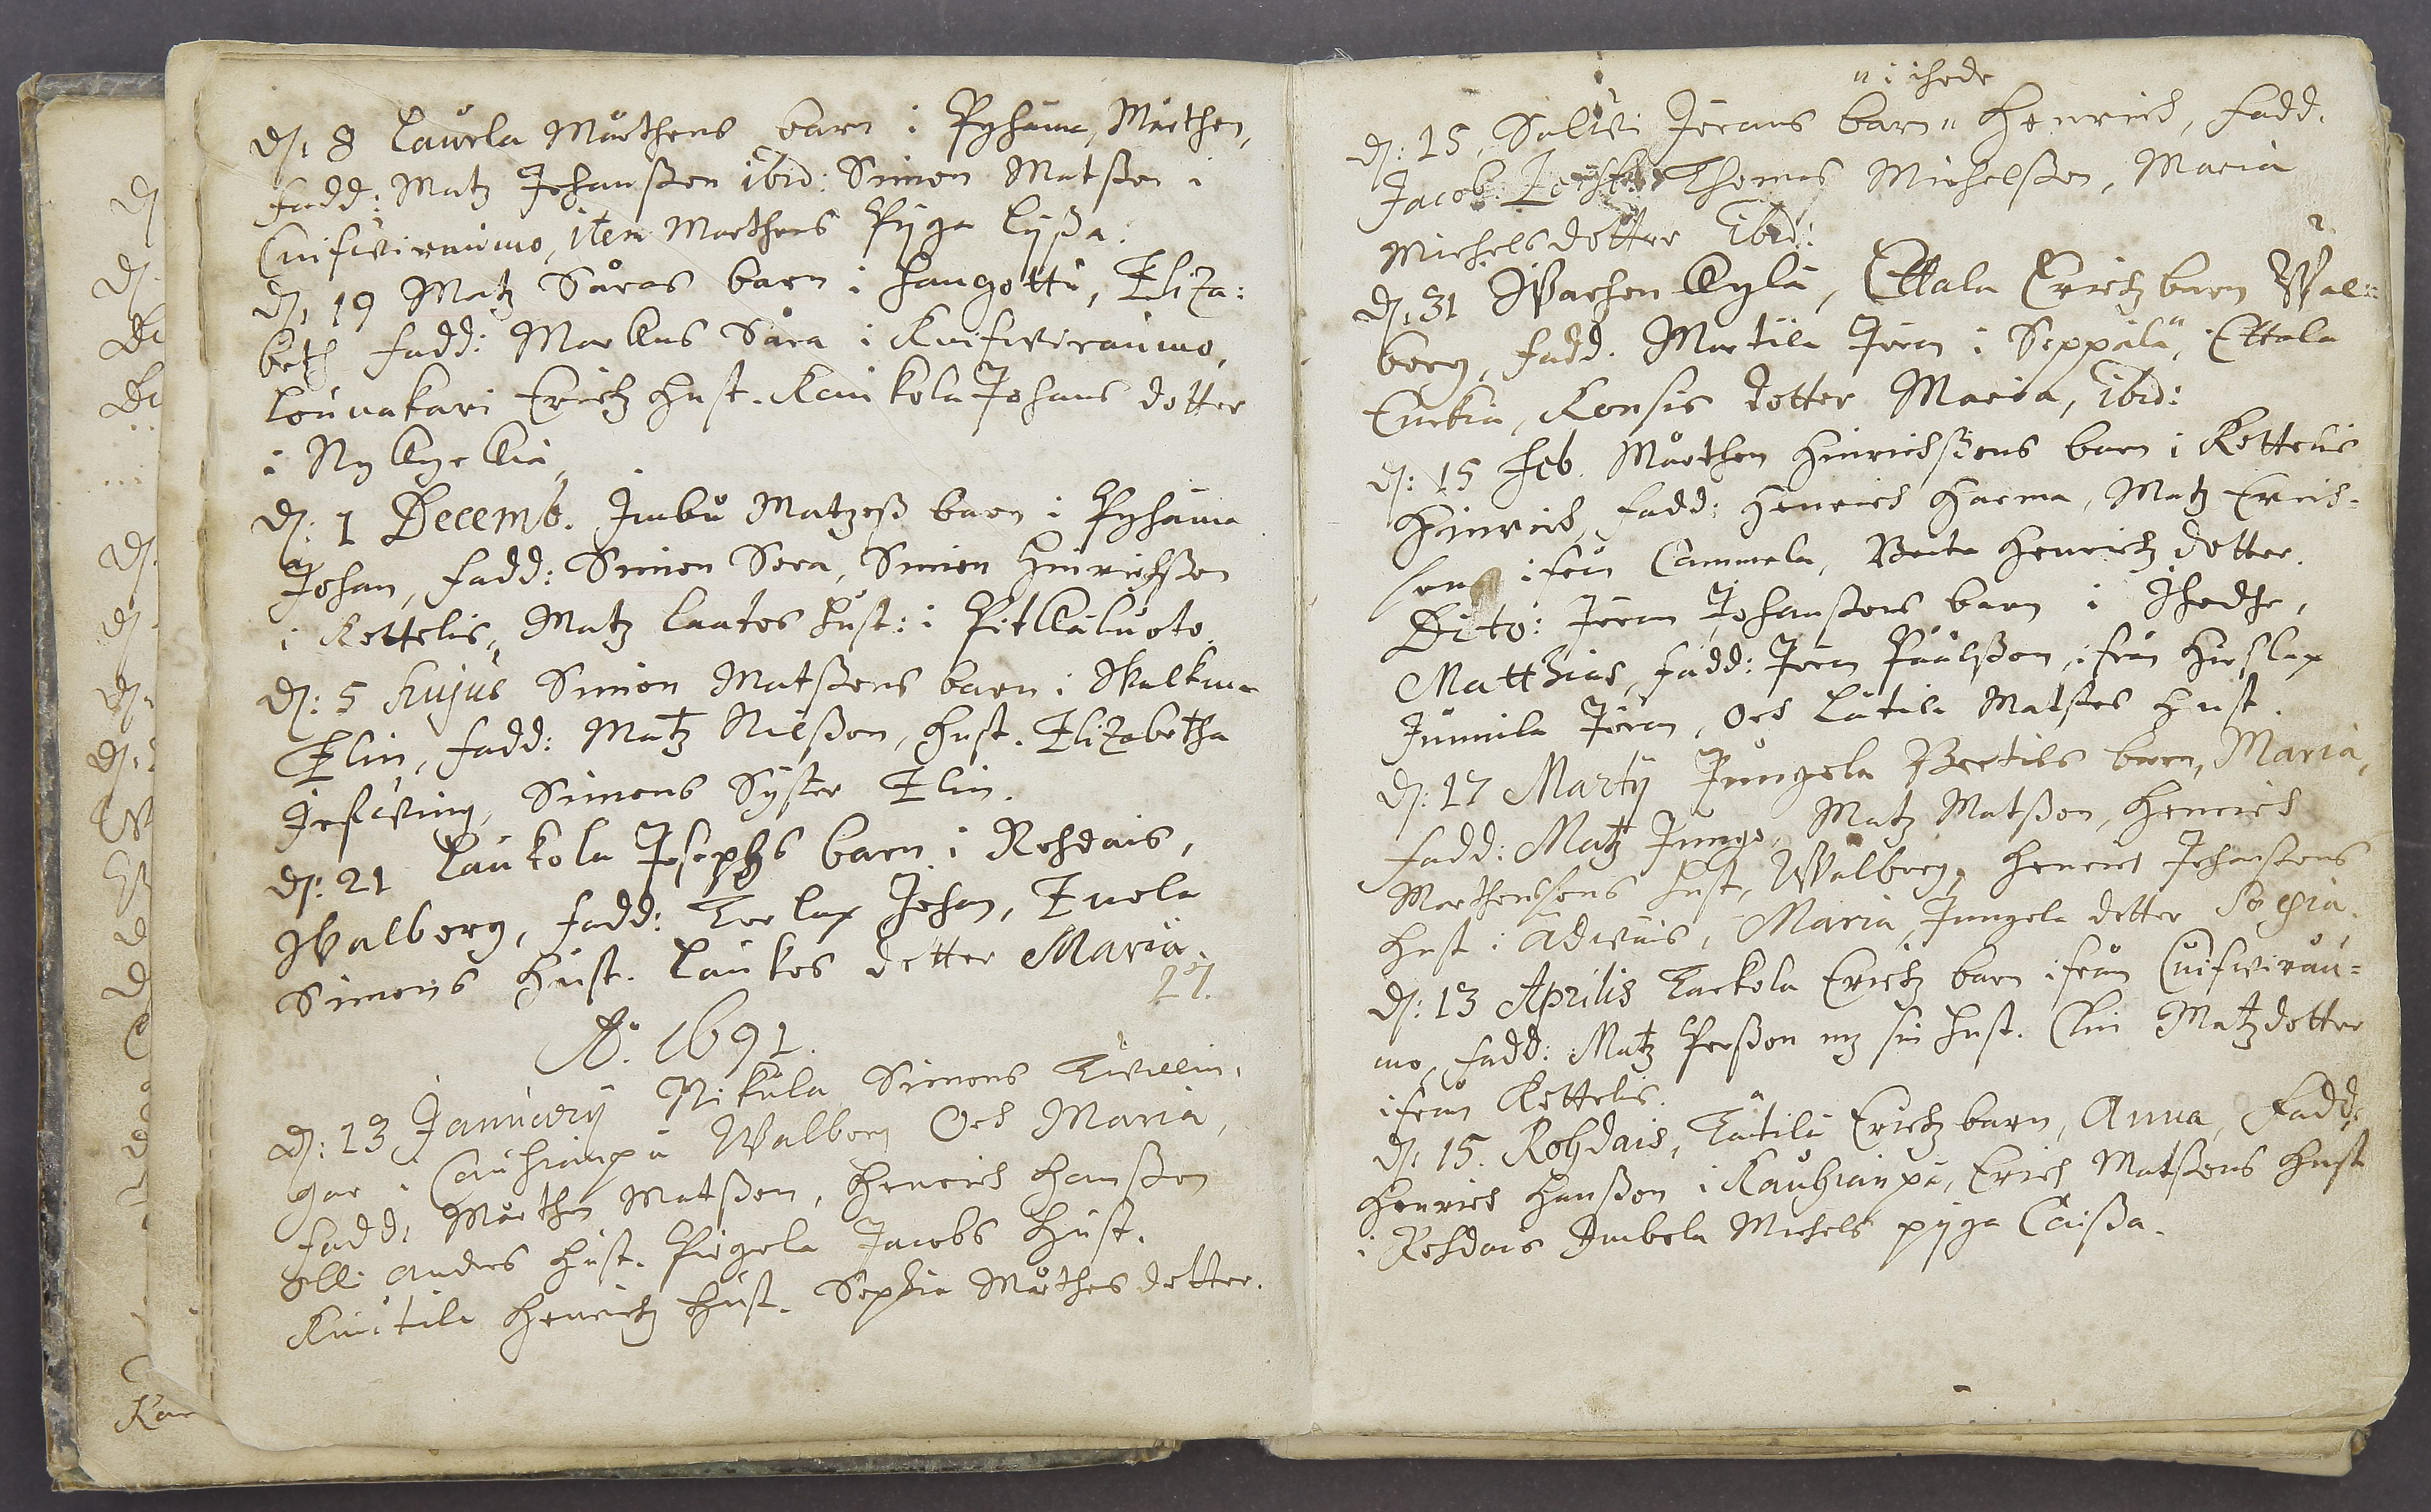 D: 8 Laurla Mårthens barn i Pyhäma, Mårthen,
fadd: Matz Johansson ibid: Simon Matsson i
Cuifwiraumo, item Marthens Pyga Lyßa.
D: 19 Matz Såras barn i Haugottu, Eliza:
beth fadd: Markus Såra i Kuifwiraumo,
Lounakari Erichz hust. Kaukola Johans dotter
i Nykyrkia
D: 1 Decemb. Imbu Matzeß barn i Pyhäma
Johan, fadd: Simon Sora, Simon Hinrichsson
i Kettelis, Matz Laatos hust: i Pitkäluoto.
D: 5 hujus Simon Matssons barn i Walkma
Elin, fadd: Matz Nilsson, hust. Elizabetha
Simons Syster Elin.
D: 21 Laukola Josephs barn i Rohdais,
Walborg, fadd: Torlax Johan, Euola
Simons hust. Laukos dotter Maria.
27.
Aº. 1691.
D: 13 January Nikula Simons Twillin,
gar i Cauhianpä Walborg Och Maria,
fadd: Mårthen Matsson, Henrich Hansson
Olli Anders hust. Piegola Jacobs hust.
Kuutila Henrichz hust. Sophia Mårthens dotter.
" i ihode
D: 15, Salwi Jörans barn " Henrich, fadd.
Jacob Thomas Michelsson, Maria
Michels dotter ibid:
D: 31 Warhen Kylä, Ettala Erichz barn Wal=
borg, fadd. Martila Jöran i Seppälä, Ettala
dotter Maria, ibid:
D: 15 Feb. Mårthen Hinrichssons barn i Kettelis
Hinrich, fadd: Henrich Harma, Matz Erich-
son ifrån Cammela, Henrichz dotter.
Dito: Jöran Johanssons barn i Ihodhe,
Matthias, fadd: Jöran Påulsson, ifrån Hirslax
Junnila Jöran, Och Lätilä Matsses hust.
D: 17 Martij Jungola Bertils barn, Maria,
fadd: Matz Jungo, Matz Matsson, Henrich
Marthenssons hust, Walborg, Henrich Johanssons
hust i Ädwais, Maria, Jungola dotter Sophia.
D: 13 Aprilis Tarkola Erichz barn ifrån Cuifwirau=
mo, fadd: Matz Persson mz sin hust. Elin Matzdotter
ifrån Kettelis.
D: 15. Rohdais, Tätilä Erichz barn, Anna, Fadd:
Henrich Hansson i Kauhianpä, Erich Matssons hust
i Rohdais Imbola Michels pyga Caissa.